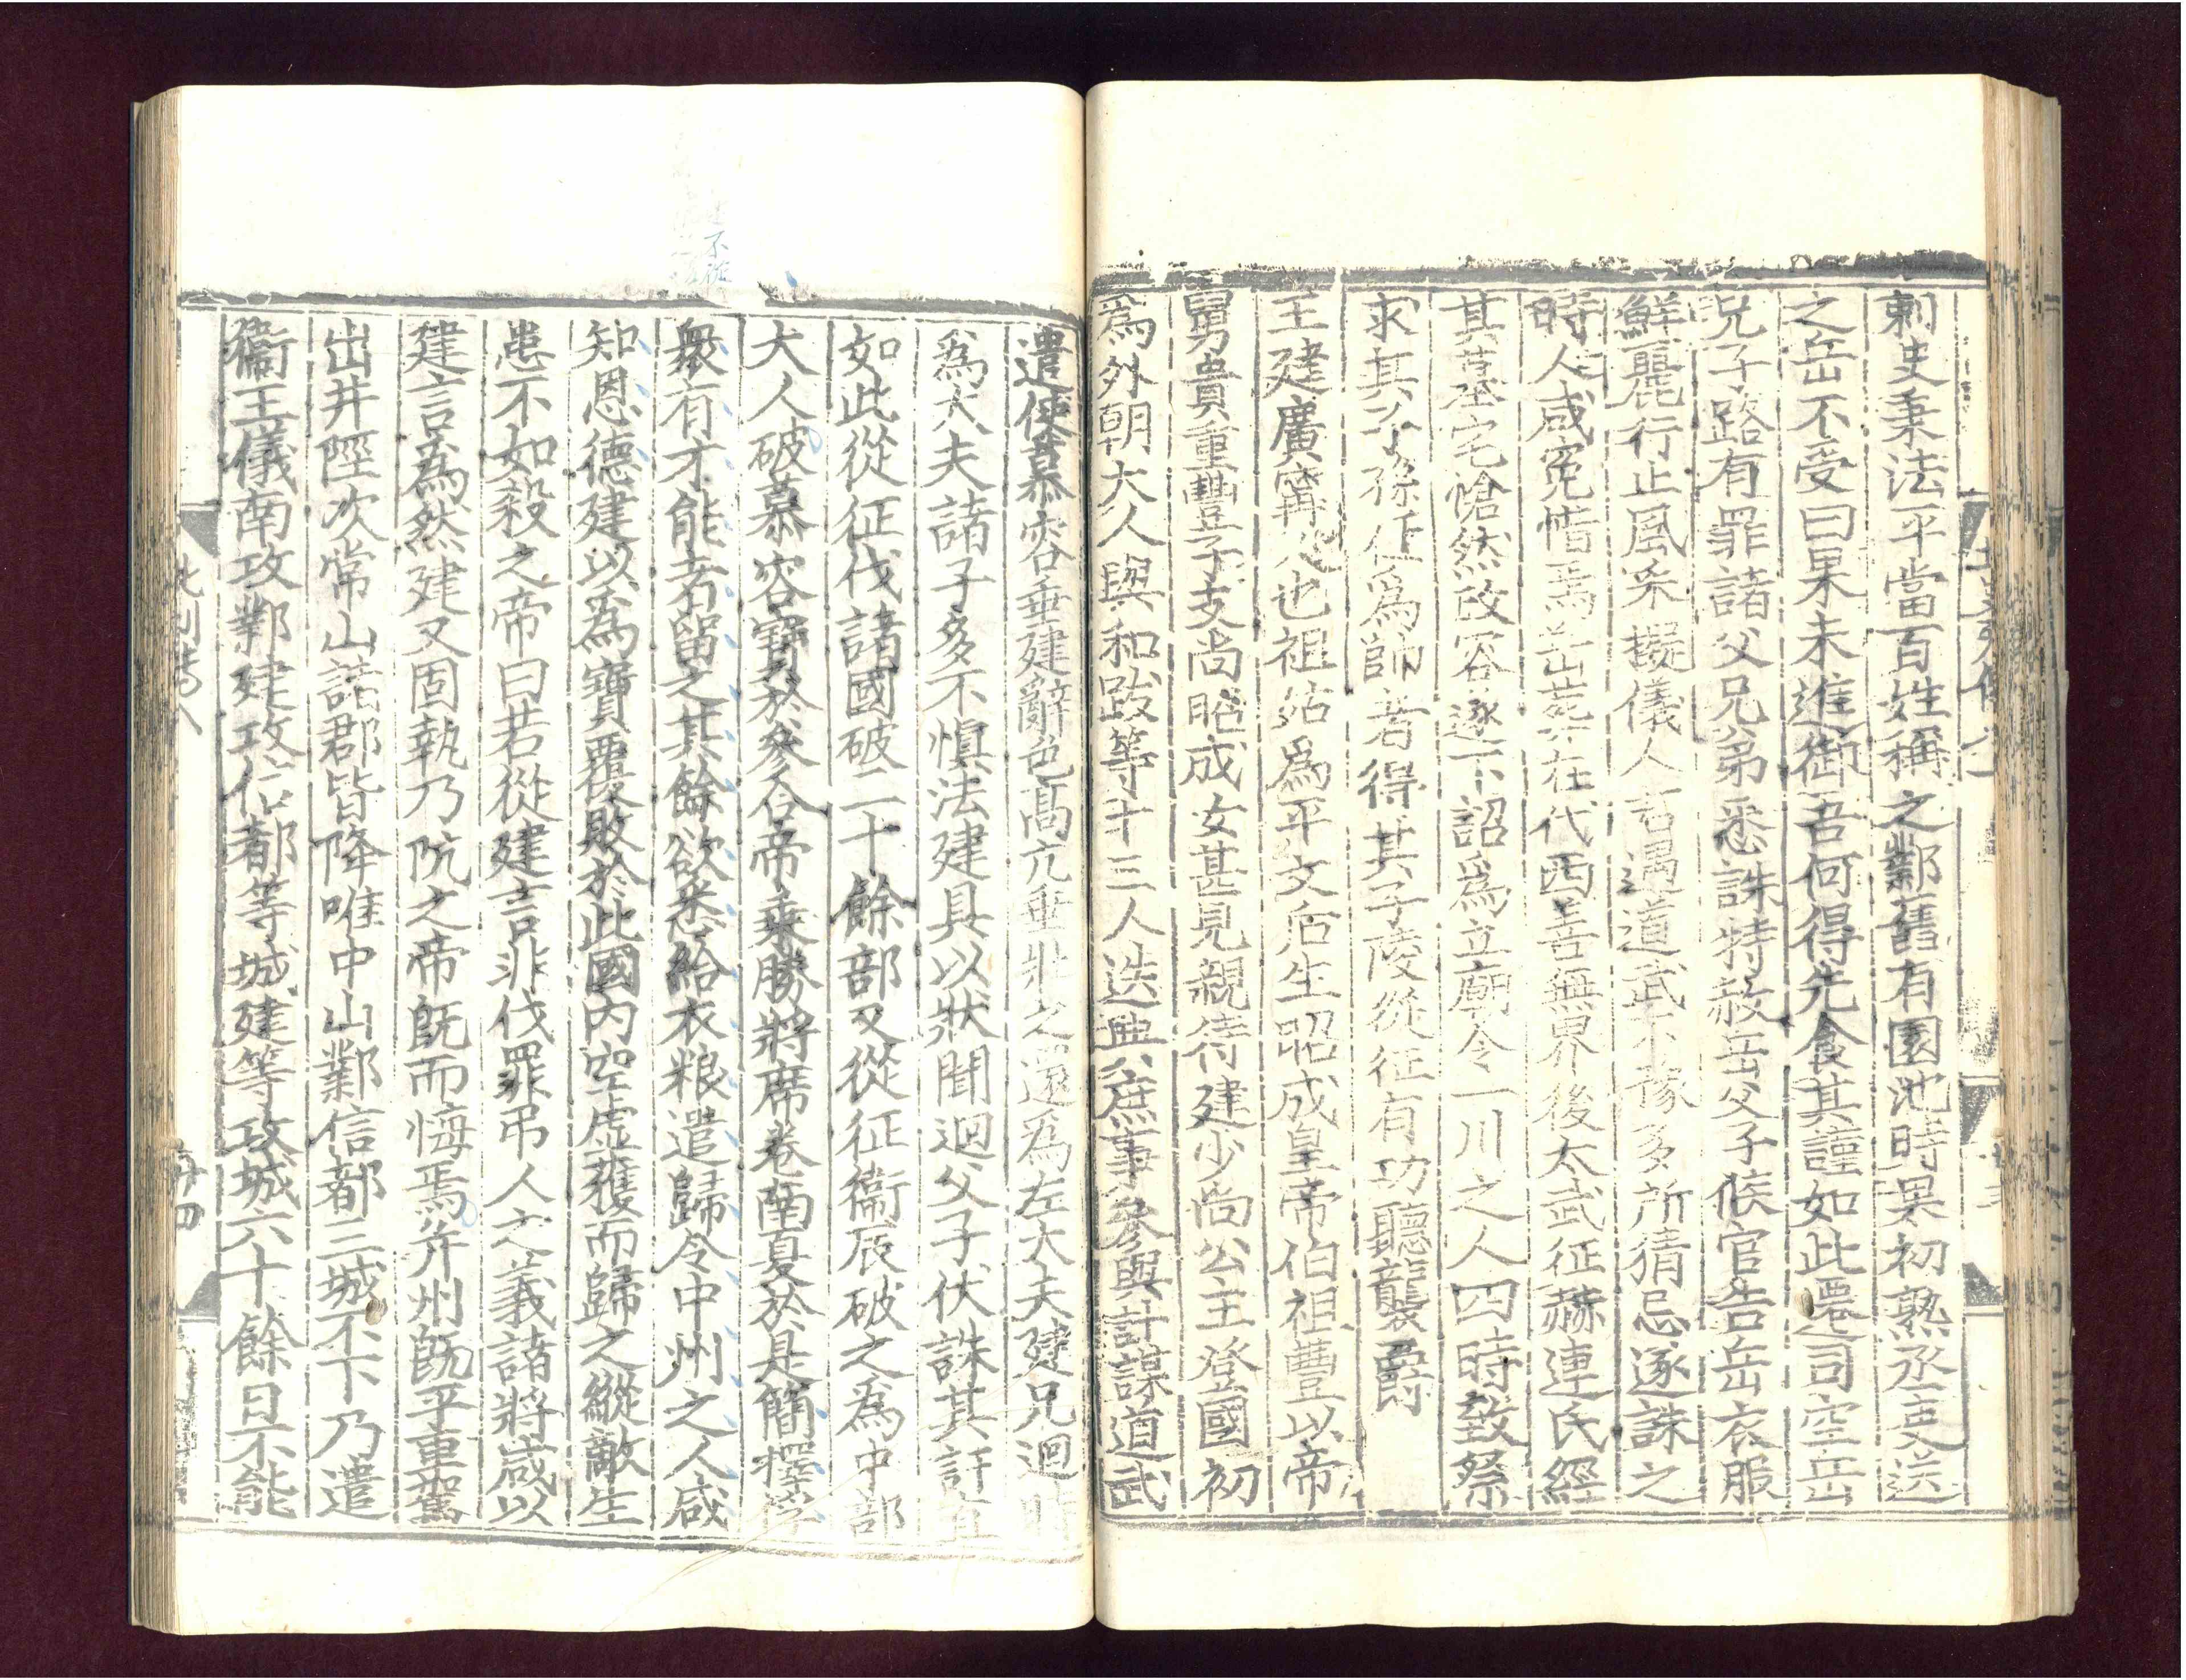 刺史秉法平當百姓稱之鄴舊有園池時果初熟丞吏送
之岳不受曰果未進御吾何得先食其謹如此遷司空岳
兄子路有罪諸父兄弟悉誅特赦岳父子候官告岳衣服
鮮麗行止風采擬儀人君遇道武不豫多所猜忌遂誅之
時人咸冤惜焉岳葬在代西善無界後太武征赫連氏經
其墓宅愴然改容遂下詔爲立廟令一川之人四時致祭
求其子孫任爲帥者得其子陵從征有功聽襲爵
王建廣甯人也祖姑爲平文后生昭成皇帝伯祖豐以帝
舅貴重豐子支尚昭成女甚見親待建少尚公主登國初
爲外朝大人與和跋等十三人迭典庶事參與計謀道武
遣使慕容垂建辭色高亢垂壯之還爲左大夫建兄迴時
爲大夫諸子多不愼法建具以狀聞迴父子伏誅其訐直
如此從征伐諸國破二十餘部又從征衞辰破之爲中部
大人破慕容寶於參合帝乘勝將席卷南夏於是簡擇俘
衆有才能者留之其餘欲悉給衣粮遣歸令中州之人咸
知恩德建以爲寶覆敗於此國內空虛獲而歸之縱敵生
患不如殺之帝曰若從建言非伐罪吊人之義諸將咸以
建言爲然建又固執乃阬之帝旣而悔焉并州旣平車駕
出井陘次常山諸郡皆降唯中山鄴信都三城不下乃遣
衞王儀南攻鄴建攻信都等城建等攻城六十餘日不能
北列傳八
廿四